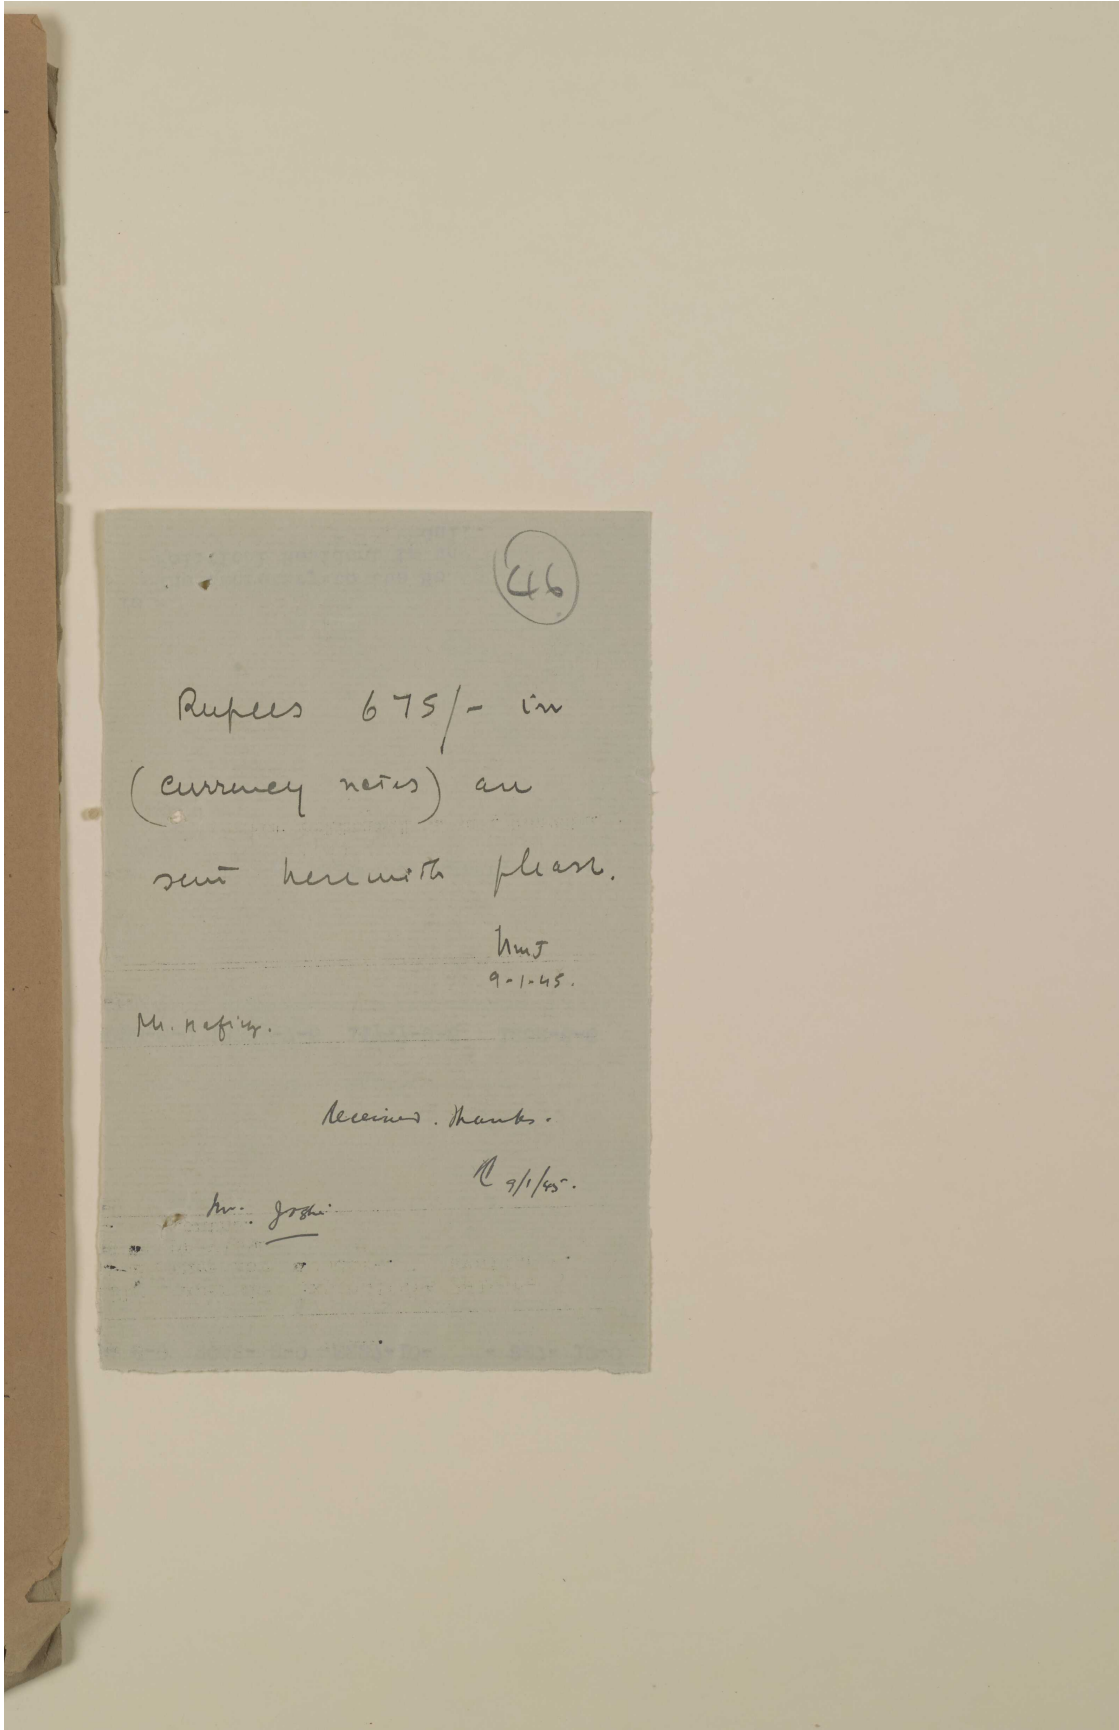 46
Rupees 675/- in
(currency notes) are
sent herewith please.
NMJ
9-1-45.
Mr. Hafiz.
Received. Thanks.
9/1/45.
Mr. Joshi